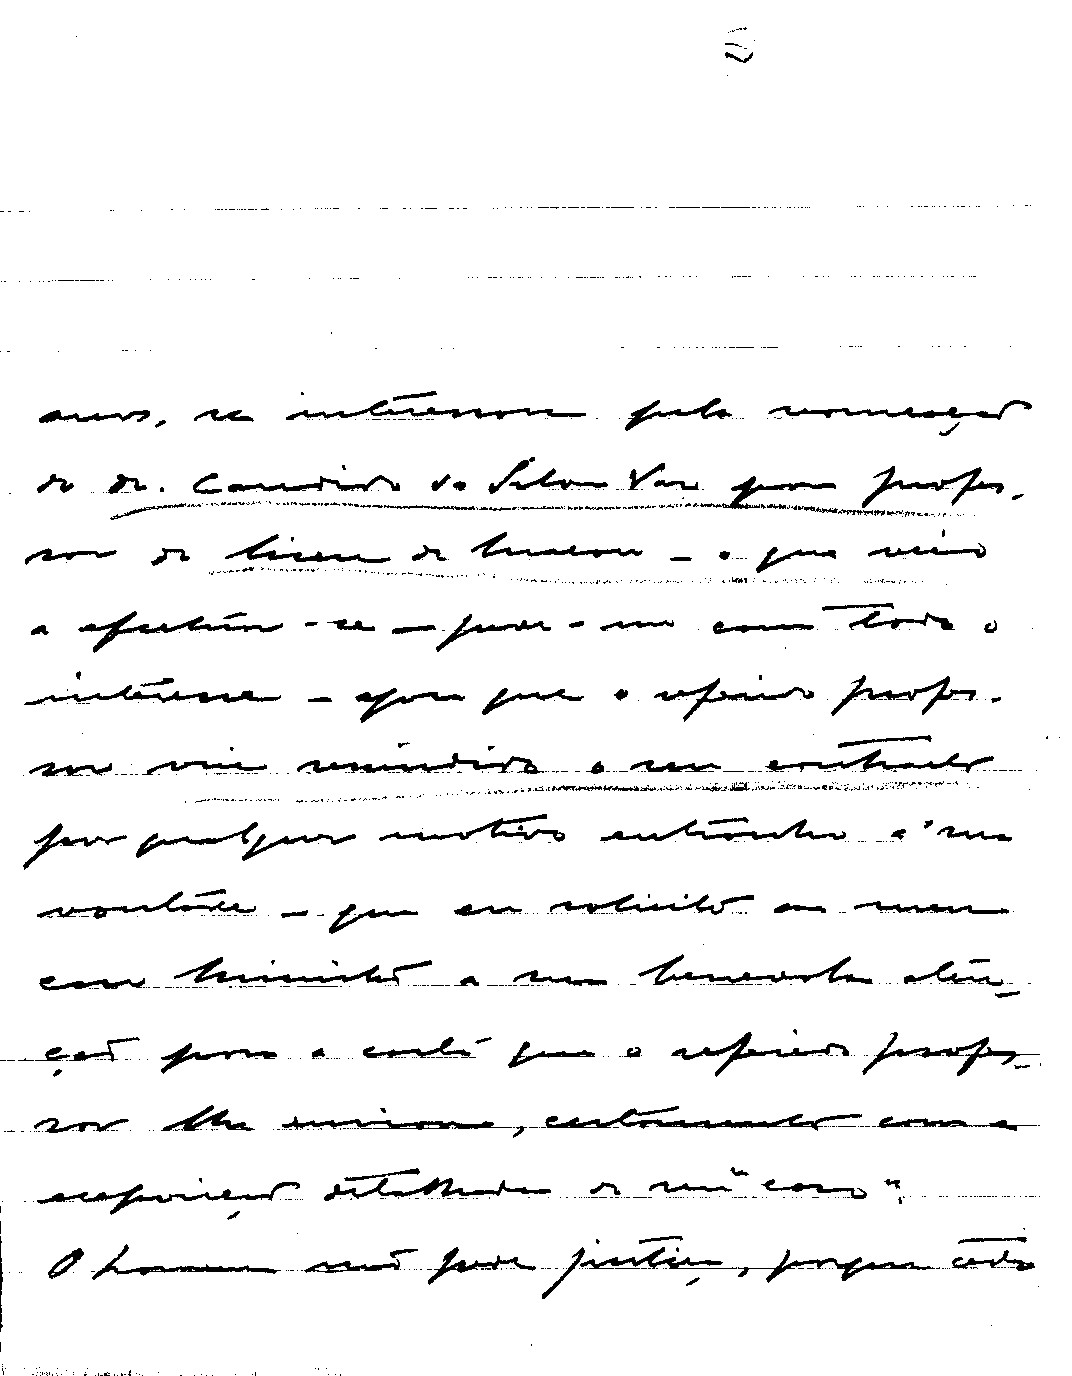 anos, se interessou pela nomeação
do dr. Candido da Silva Vaz para profes-
sor do liceu de Macau - o que veio
a efectuar-se - pede-me com todo o
interesse - agora que o referido profes-
sor viu rescindido o seu contracto
por qualquer motivo extranho á sua
vontade - que eu solicite ao meu
caro Ministro a sua benevola aten-
ção para a carta que o referido profes-
sor lhe enviou, certamente com a
exposição detalhada do seu "caso".
O homem não pede justiça, porque